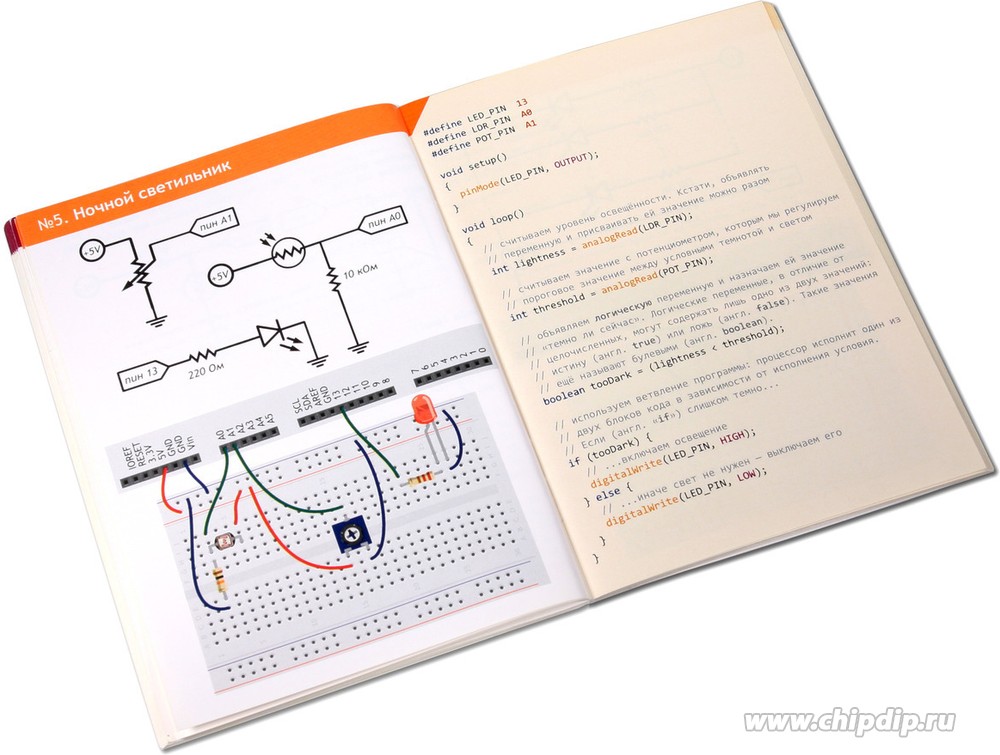 №5. Ночной светильник
+5V
пин A1
+5V
пин A0
10 кОм
пин 13
220 Ом
IOREF
RESET
3.3V
5V
GND
GND
Vin
A0
A1
A2
A3
A4
A5
SCL
SDA
AREF
GND
13
12
11
10
9
8
7
6
5
4
3
2
1
0
#define LED_PIN 13
#define LDR_PIN A0
#define POT_PIN A1
void setup()
{
pinMode(LED_PIN, OUTPUT);
}
void loop()
{
// считываем уровень освещённости. Кстати, объявлять
// переменную и присваивать ей значение можно разом
int lightness = analogRead(LDR_PIN);
// считываем значение с потенциометром, которым мы регулируем
// пороговое значение между условными темнотой и светом
int threshold = analogRead(POT_PIN);
// объявляем логическую переменную и назначаем ей значение
// «темно ли сейчас». Логические переменные, в отличие от
// целочисленных, могут содержать лишь одно из двух значений:
// истину (англ. true) или ложь (англ. false). Такие значения
// ещё называют булевыми (англ. boolean).
boolean tooDark = (lightness < threshold);
// используем ветвление программы: процессор исполнит один из
// двух блоков кода в зависимости от исполнения условия.
// Если (англ. «if») слишком темно...
if (tooDark) {
// ...включаем освещение
digitalWrite(LED_PIN, HIGH);
} else {
// ...иначе свет не нужен — выключаем его
digitalWrite(LED_PIN, LOW);
}
}
www.chipdip.ru